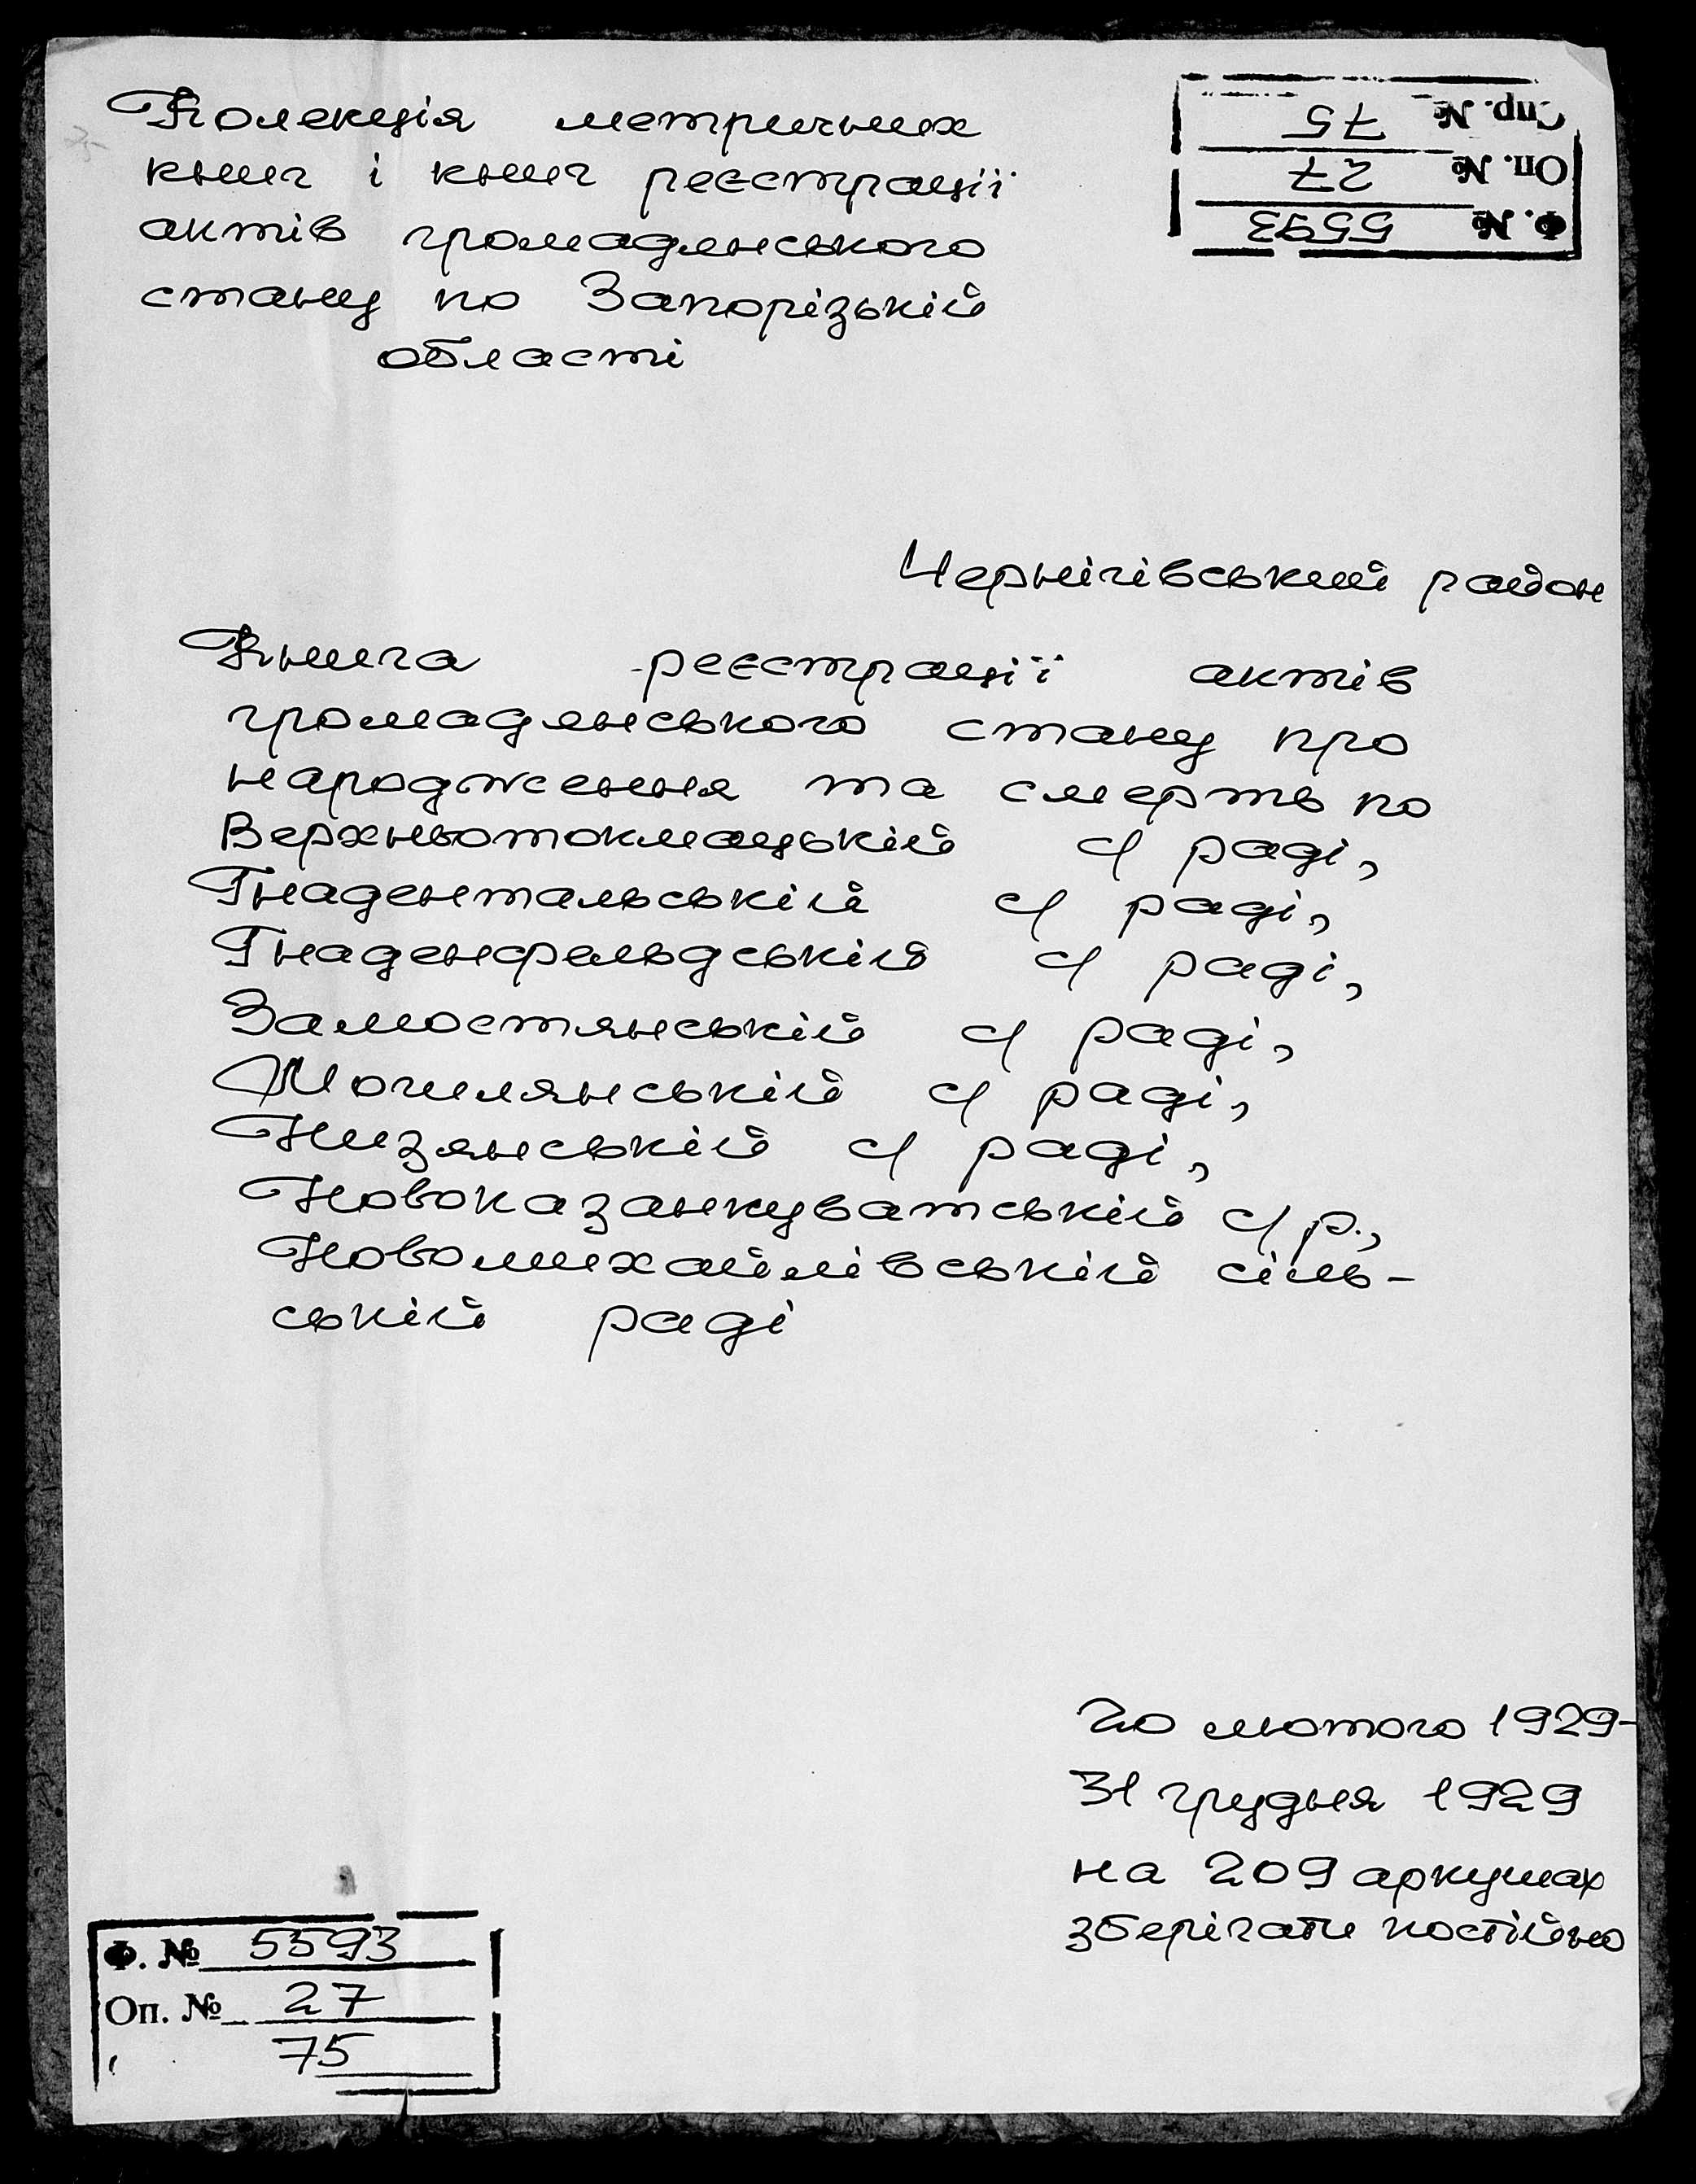 Колекція метричних
книг і книг реєстрації
актів громадянського
стану по Запорізькій
області
Спр. № 75
Оп. № 27
Ф. № 5593
Чернігівський район
Книга реєстрації актів
громадянського стану про
народження та смерть по
Верхньотокмацькій с/ раді,
Гнадентальській с/ раді,
Гнаденфельдській с/ раді,
Замостянській с/ раді,
Могилянській с/ раді,
Низянській с/ раді,
Новоказанкуватській с/ р.,
Новомихайлівській сіль-
ській раді
20 лютого 1929-
31 грудня 1929
на 209 аркушах
зберігати постійно
Ф. № 5593
Оп. № 27
75